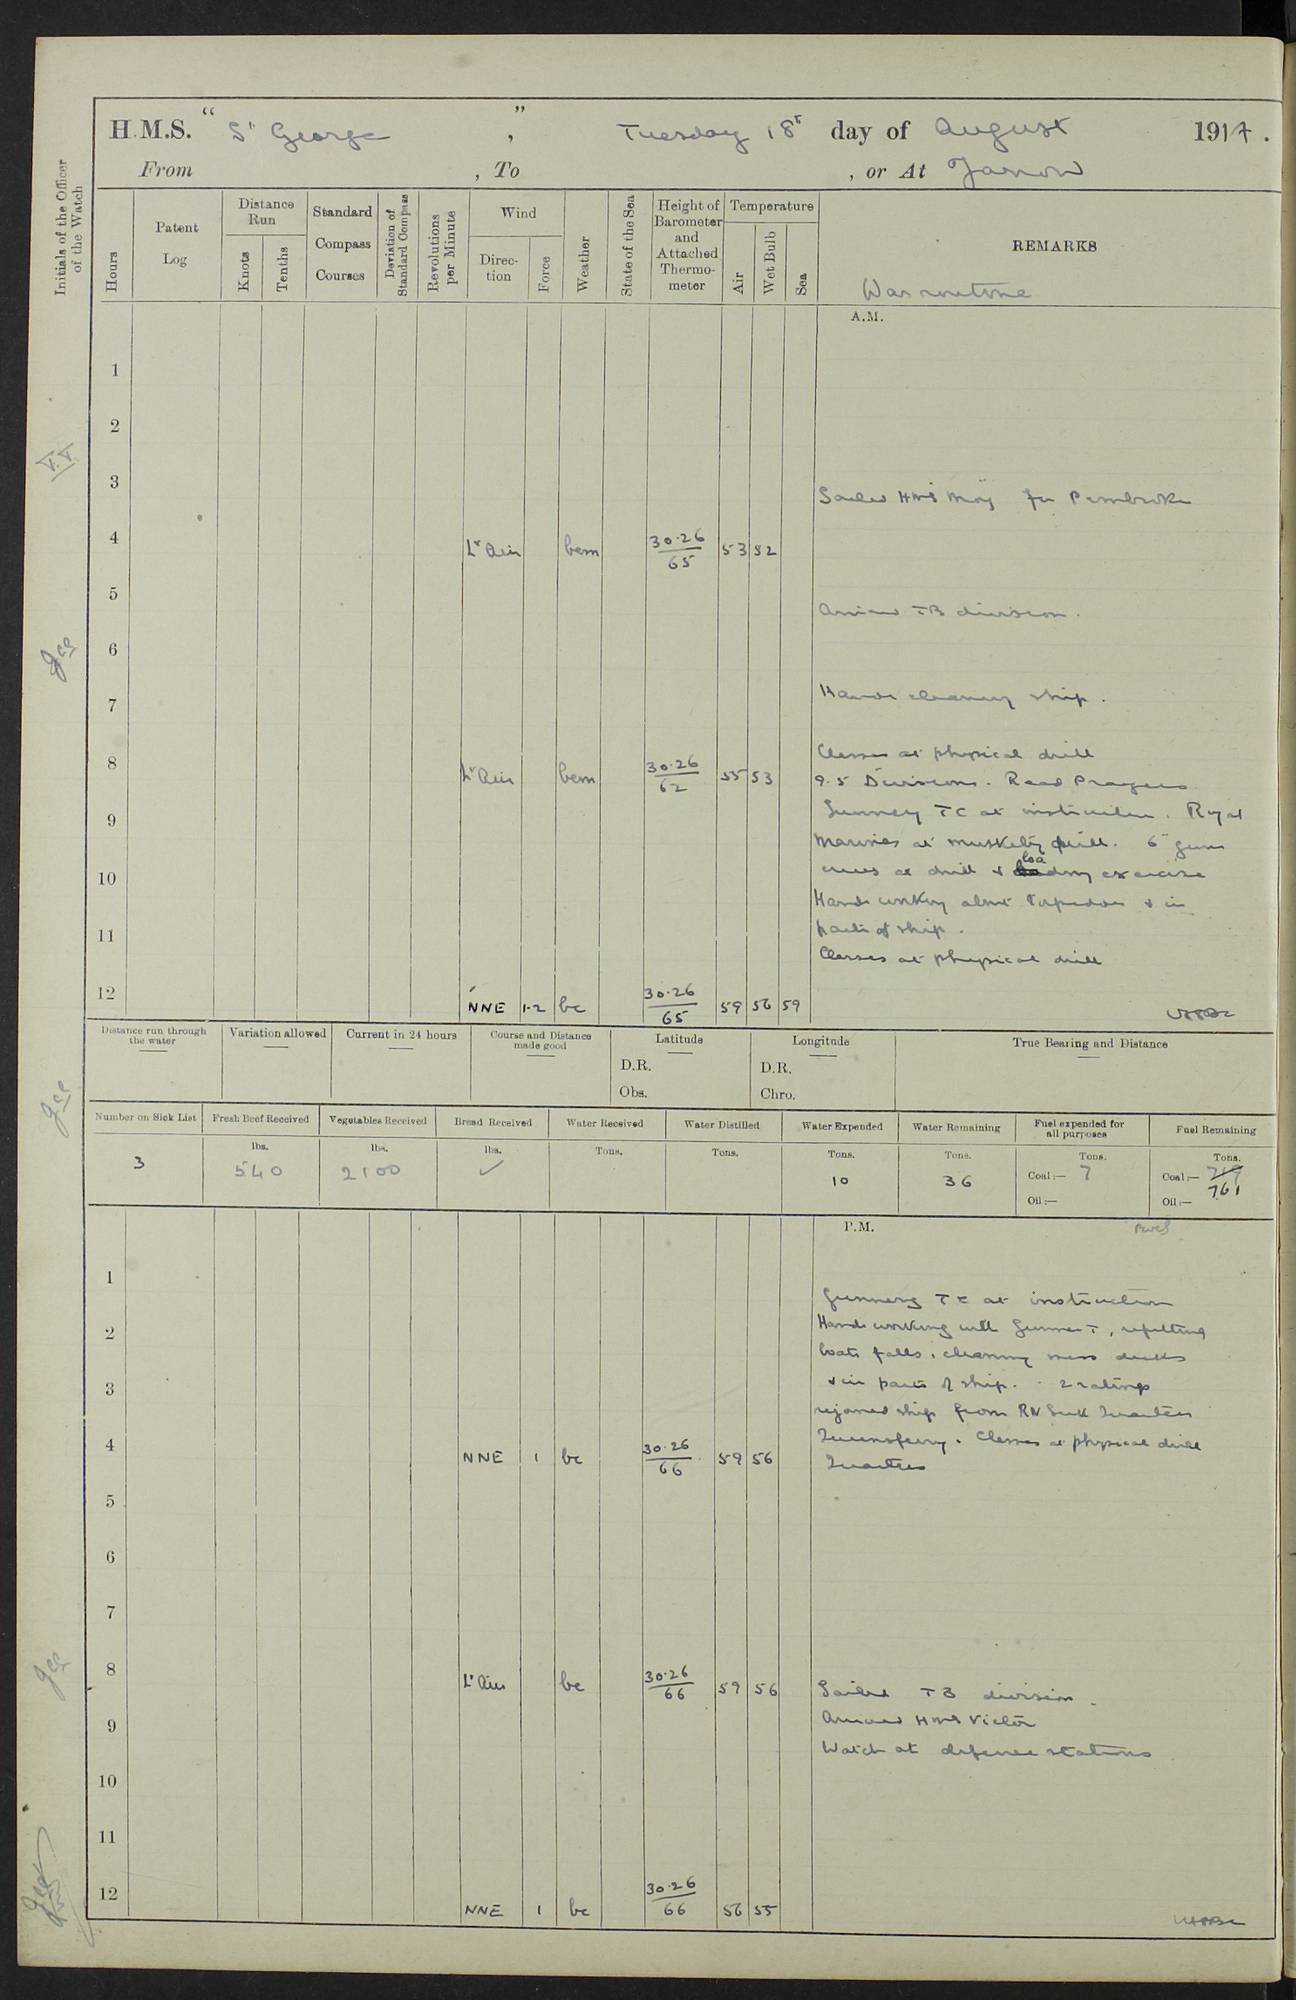 H.M.S. " St George " , Tuesday 18th day of August 1914.
From , To , or At Jarrow
Initials of the Officer of the Watch
Hours
Patent Log
Distance Run
Knots
Tenths
Standard Compass Courses
Deviation of Standard Compass
Revolutions per Minute
Wind
Direction
Force
Weather
State of the Sea
Height of Barometer and Attached Thermometer
Temperature
Air
Wet Bulb
Sea
REMARKS
War routine
A.M.
1
2
V.V.
3
Sailed HMS Moy for Pembroke
4 Lt Air bcm 30.26/65 53 52
5
Arrived TB division.
6
7 Hands cleaning ship.
Classes at physical drill
8 Lt Air bcm 30.26/62 55 53
9.5 Divisions. Read Prayers
9 Gunnery TC at instruction. Royal
Marines at musketry drill. 6" guns
crews at drill & loading exercise
10
Hands working about Torpedoes & in
11 parts of ship.
Classes at physical drill
12 NNE 1-2 bc 30.26/65 59 56 59
Distance run through the water
Variation allowed
Current in 24 hours
Course and Distance made good
Latitude
D.R.
Obs.
Longitude
D.R.
Chro.
True Bearing and Distance
Number on Sick List
Fresh Beef Received
Vegetables Received
Bread Received
Water Received
Water Distilled
Water Expended
Water Remaining
Fuel expended for all purposes
Fuel Remaining
lbs. lbs. lbs. Tons. Tons. Tons. Tons. Tons. Tons.
3 540 2100 ✓ 10 36 Coal:— 7 Coal:— 761
Oil:— Oil:—
P.M.
1
Gunnery TC at instruction
2 Hands working with Gunner T, refitting
boats falls, cleaning mess decks
3 & in parts of ship. 2 ratings
rejoined ship from RN Sick Quarters
4 Queensferry. Classes at physical drill
NNE 1 bc 30.26/66 59 56 Quarters
5
6
7
8 Lt Air bc 30.26/66 59 56 Sailed TB division.
9 Arrived HMS Victor
Watch at defence stations
10
11
12 NNE 1 bc 30.26/66 56 55